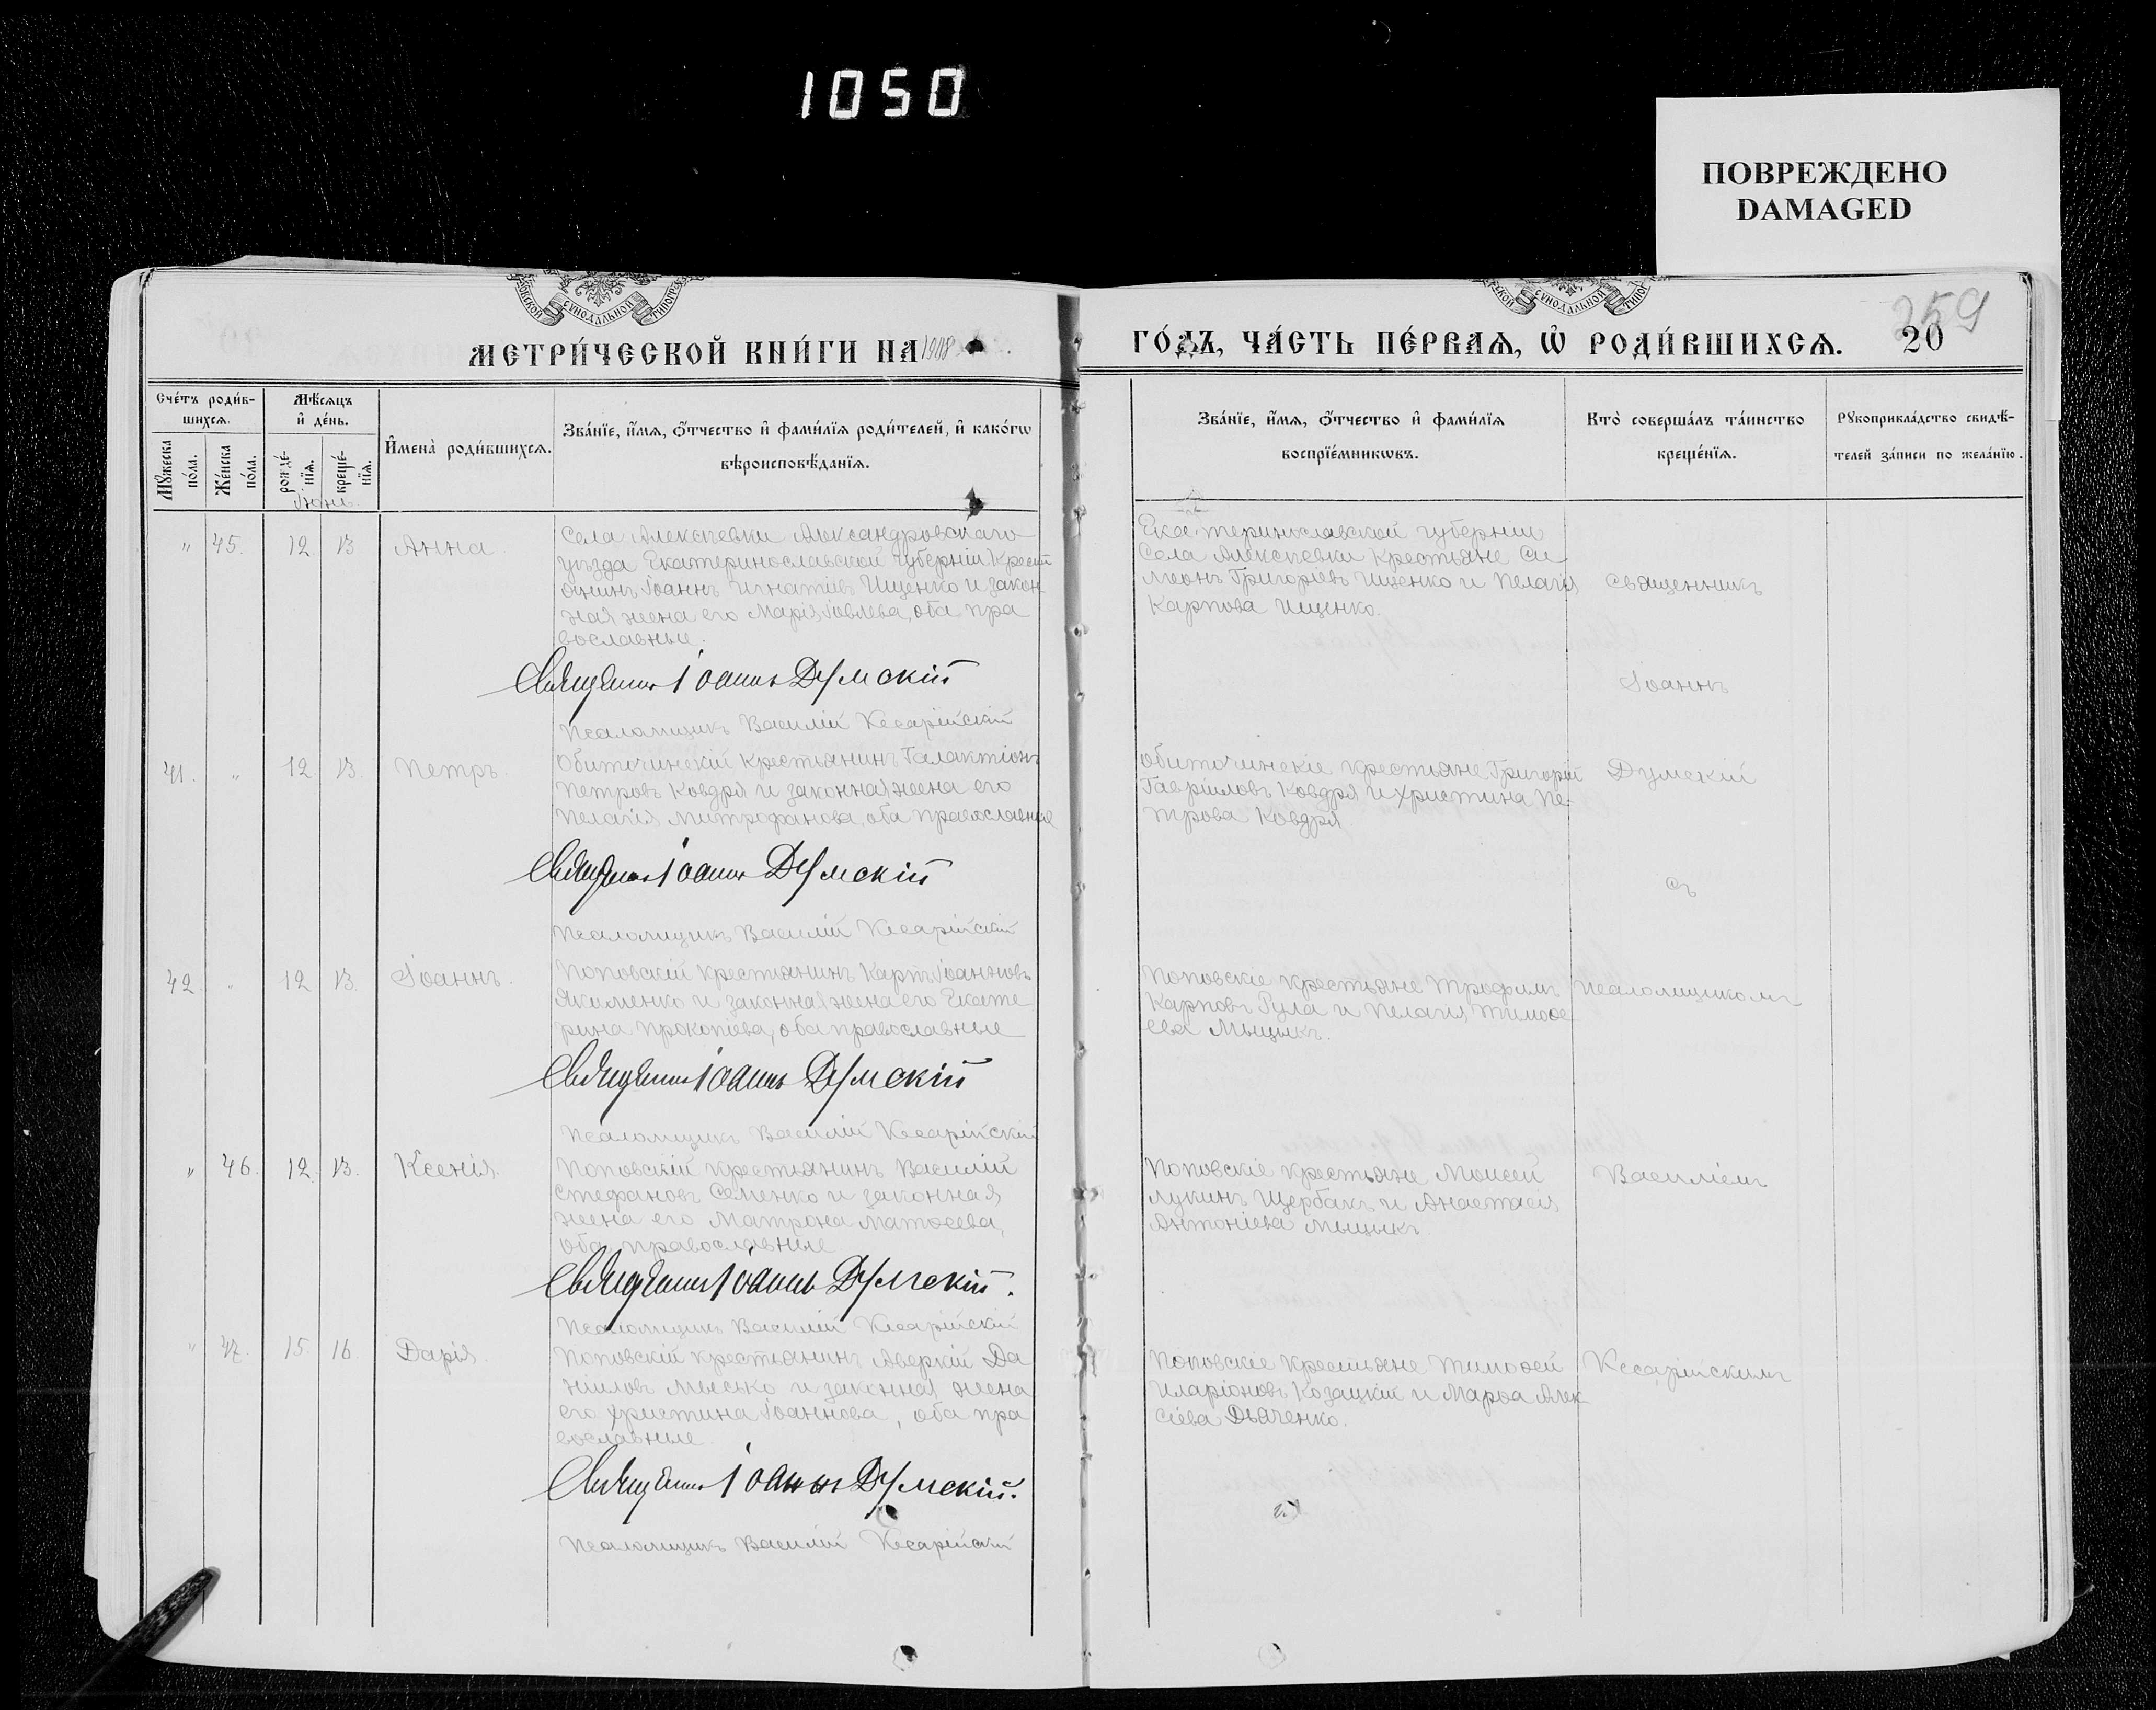 1050
ПОВРЕЖДЕНО
DAMAGED
СѴНОДАЛЬНОЙ
СѴНОДАЛЬНОЙ
МЕТРИ́ЧЕСКОЙ КНИ́ГИ НА 1908
ГО́ДЪ, ЧА́СТЬ ПЕ́РВАѦ, Ѡ҆ РОДИ́ВШИХСѦ.
20
259
Сче́тъ роди́в-
шихсѧ.
Мꙋ́жеска
по́ла.
Же́нска
по́ла.
Мѣ́сѧцъ
и҆ де́нь.
рожде́-
нїѧ.
креще́-
нїѧ.
Іюнь
И҆мена̀ роди́вшихсѧ.
Зва́нїе, и҆́мѧ, ѻ҆́тчество и҆ фами́лїѧ роди́телей, и҆ како́гѡ
вѣроисповѣ́данїѧ.
Зва́нїе, и҆́мѧ, ѻ҆́тчество и҆ фами́лїѧ
воспрїе́мникѡвъ.
Кто̀ соверша́лъ та́инство
креще́нїѧ.
Рꙋкоприкла́дство свидѣ́-
телей за́писи по жела́нїю.
" 45. 12 13 Анна.
Села Алексѣевки Александровскаго
уѣзда Екатеринославской губерніи крест
янинъ Іоаннъ Игнатіевъ Ищенко и закон
ная жена его Марія Іовлева, оба пра
вославные.
Священникъ Іоаннъ Думскій
Псаломщикъ Василій Кесарійскій
Екатеринославской губерніи
Села Алексѣевки крестьяне Си-
меонъ Григоріевъ Ищенко и Пелагія
Карпова Ищенко.
Священникъ
Іоаннъ
41. " 12. 13. Петръ.
Обиточинскій крестьянинъ Галактіонъ
Петровъ Ковдря и законная жена его
Пелагія Митрофанова, оба православные
Священникъ Іоаннъ Думскій
Псаломщикъ Василій Кесарійскій
Обиточинскіе крестьяне Григорій
Гавріиловъ Ковдря и Христина Пе-
трова Ковдря.
Думскій
съ
42. " 12 13. Іоаннъ.
Поповскій крестьянинъ Карпъ Іоанновъ
Якименко и законная жена его Екате
рина Прокопіева, оба православные
Священникъ Іоаннъ Думскій
Псаломщикъ Василій Кесарійскій
Поповскіе крестьяне Трофимъ
Карповъ Гула и Пелагія Тимоѳе
ева Мыцыкъ.
псаломщикомъ
" 46. 12. 13. Ксенія.
Поповскій крестьянинъ Василій
Стефановъ Семенко и законная
жена его Матрона Матѳеева,
оба православные
Священникъ Іоаннъ Думскій.
Псаломщикъ Василій Кесарійскій
Поповскіе крестьяне Моисей
Лукинъ Щербакъ и Анастасія
Антоніева Мыцыкъ.
Василіемъ
" 47. 15. 16. Дарія.
Поповскій крестьянинъ Аверкій Да
ніиловъ Мысько и законная жена
его Христина Іоаннова, оба пра
вославные.
Священникъ Іоаннъ Думскій.
Псаломщикъ Василій Кесарійскій
Поповскіе крестьяне Тимоѳей
Иларіоновъ Козацкій и Марѳа Алек
сіева Дьяченко.
Кесарійскимъ